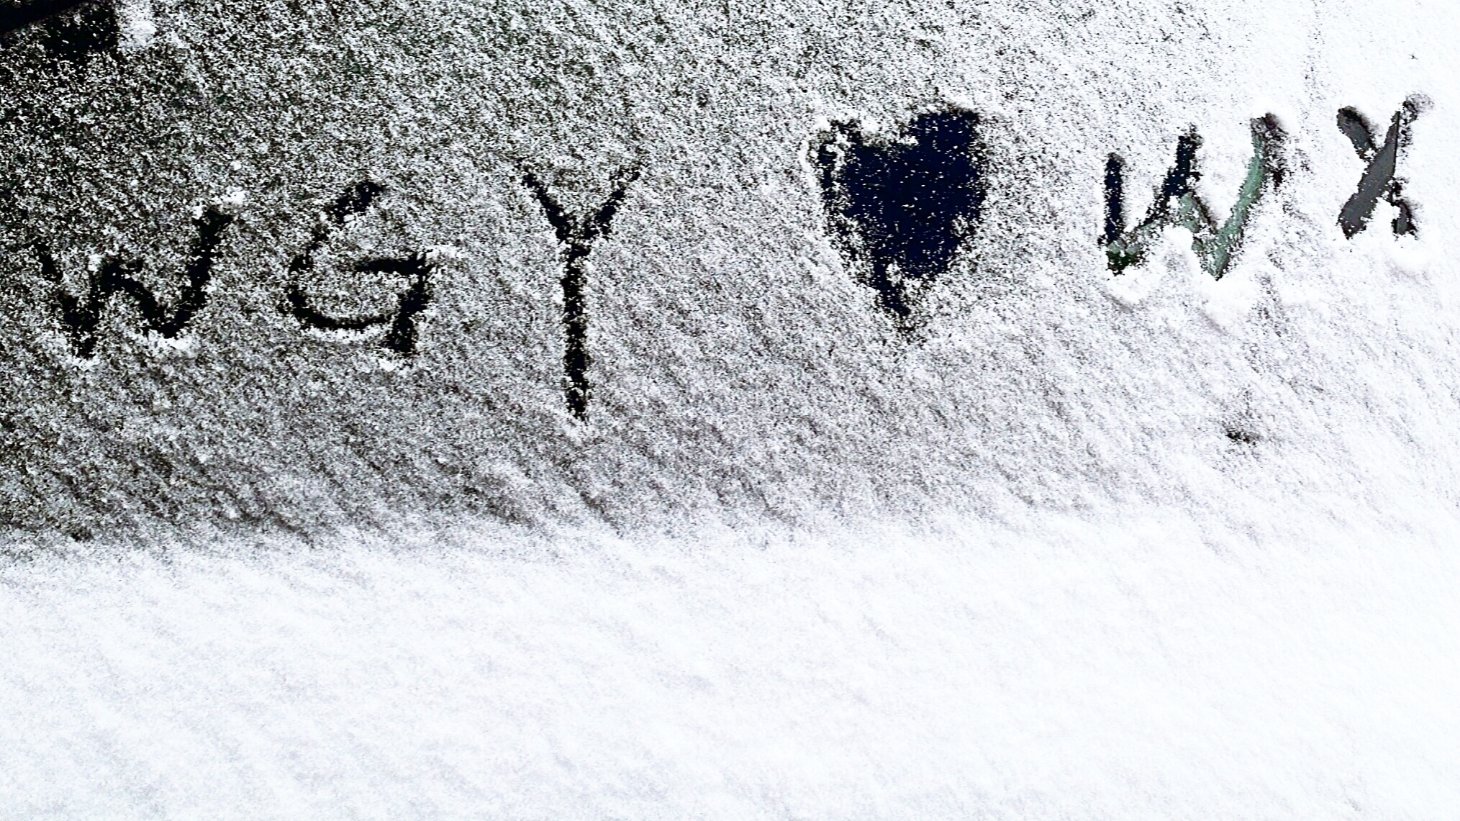 WGY ♥ WX